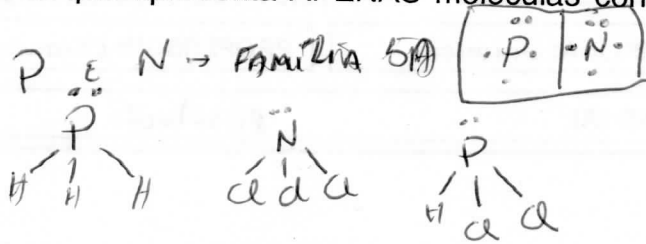 APENAS moléculas con
P E N → FAMÍLIA 5A P N
P N P
H H H Cl Cl Cl H Cl Cl